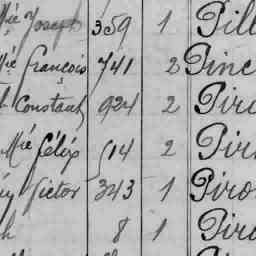 Mie Joseph 359 1 Pill
Mie François 741 2 Pinc
Constant 924 2 Piro
Mie Félix 614 2 Pir
Victor 343 1 Piro
8 1 Piro